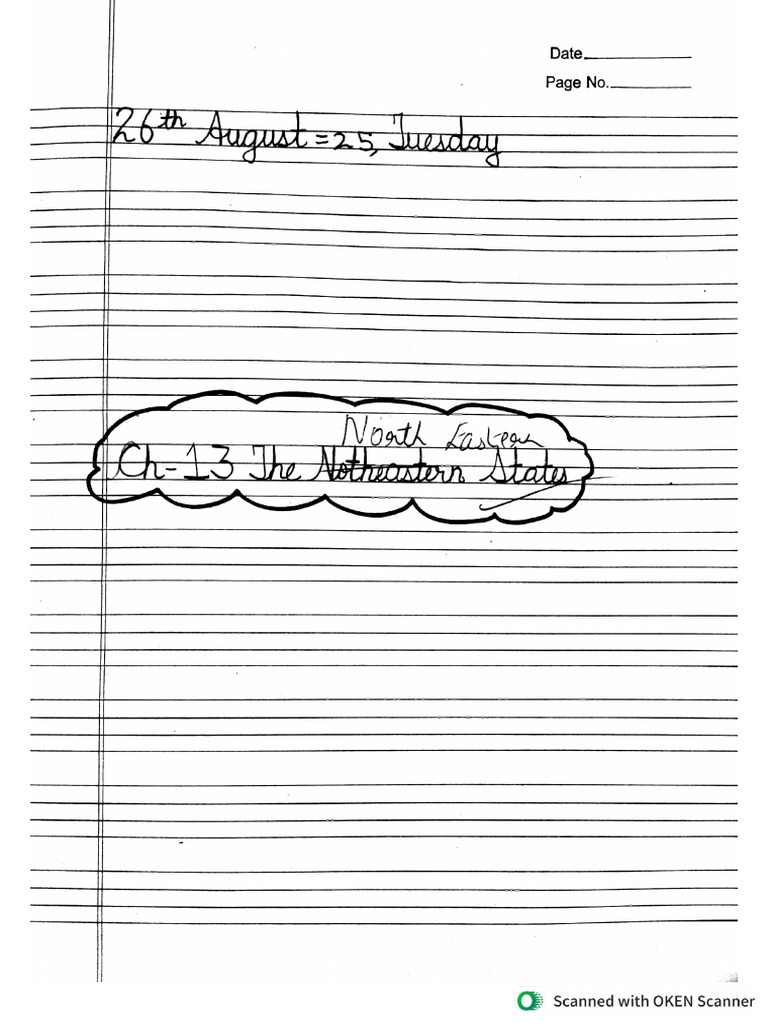 Date
Page No.
26th August=25, Tuesday
North Eastern
Ch-13 The Notheastern States
Scanned with OKEN Scanner